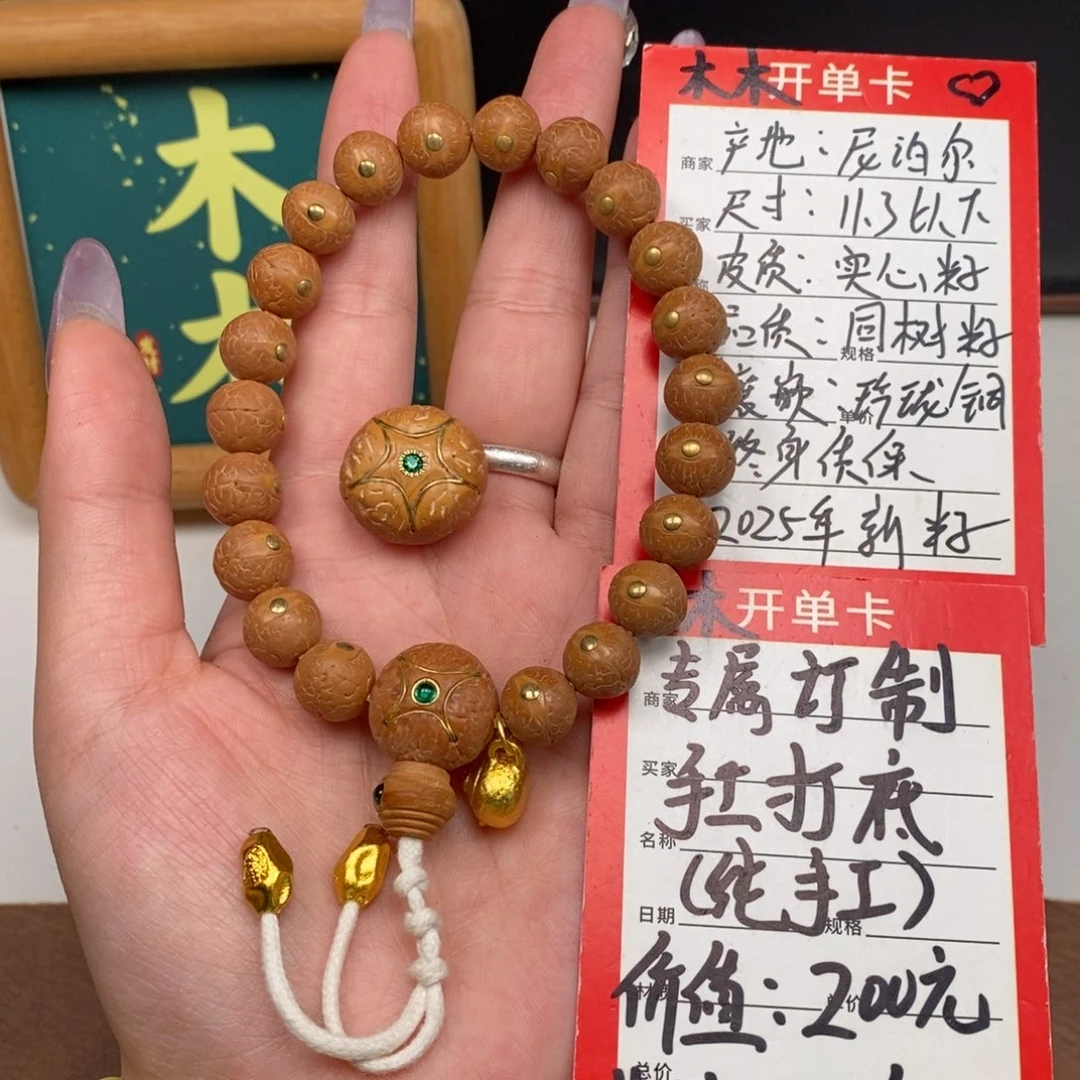 木木
木木开单卡
商家 产地:尼泊尔
买家 尺寸:11.3以下
称 皮质:实心籽
品质:同树籽
规格
镶嵌:玲珑/铜
单价
终身质保
2025年新籽
木开单卡
商家 专属订制
买家 手工打底
名称
(纯手工)
日期 规格
价值:200元
单价
总价